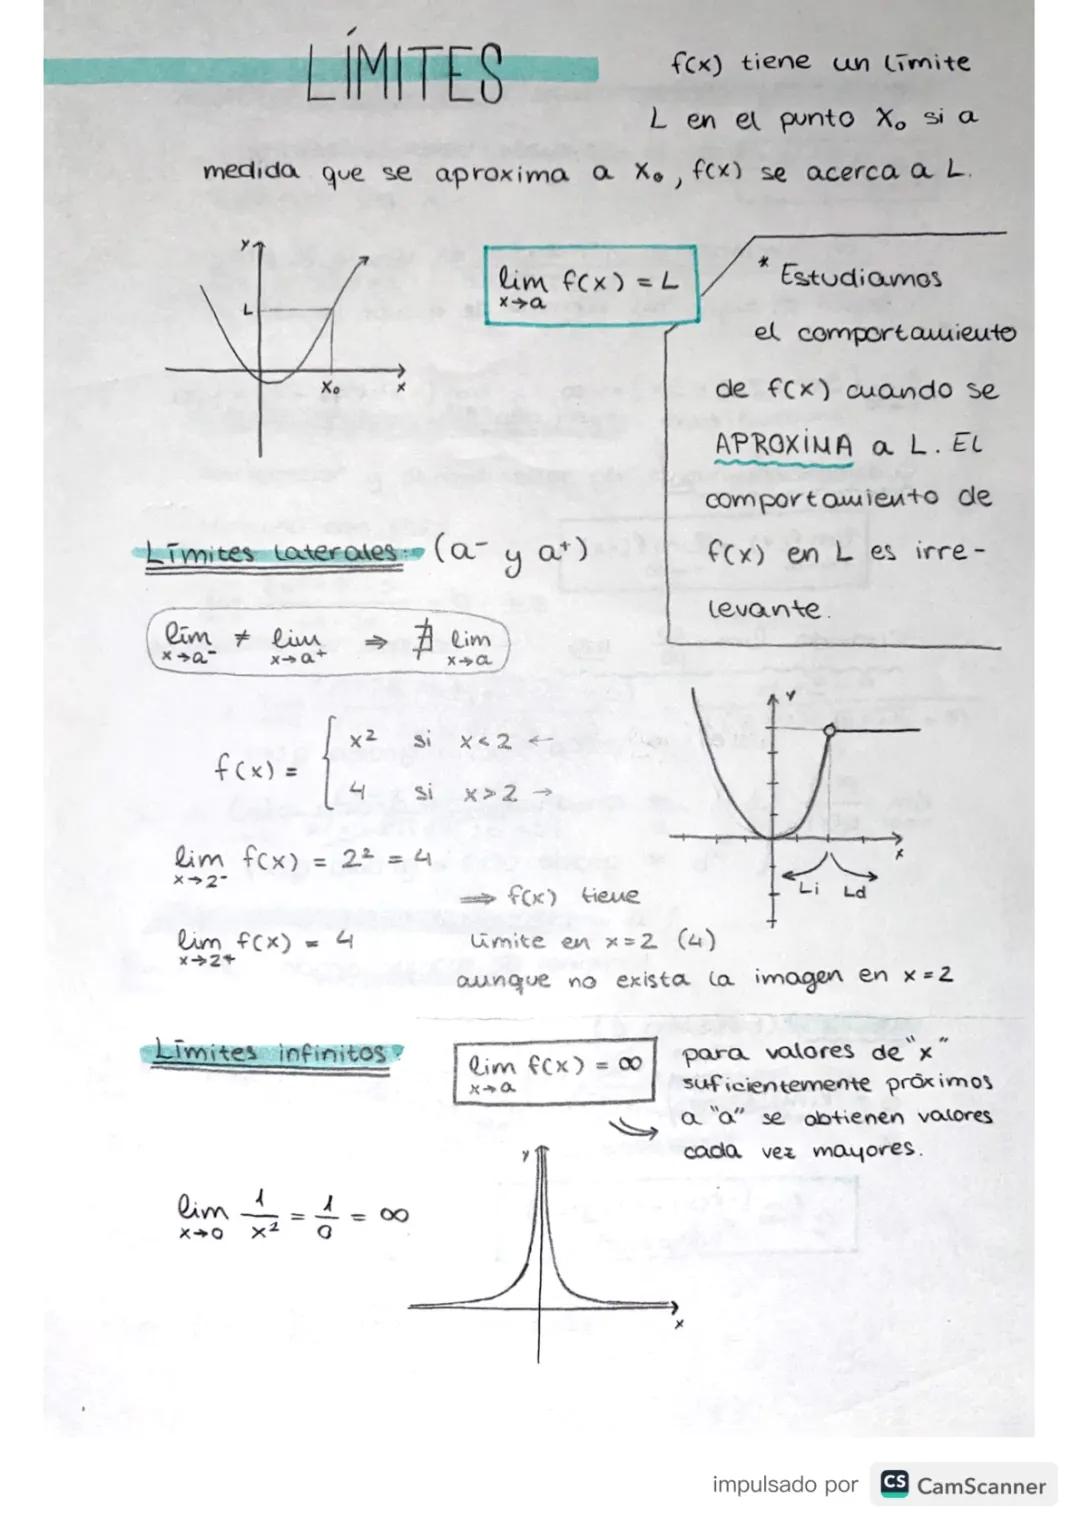 LÍMITES
f(x) tiene un límite
L en el punto X₀ si a
medida que se aproxima a X₀, f(x) se acerca a L.
y
L
X₀
x
lim f(x) = L
x→a
* Estudiamos
el comportamiento
de f(x) cuando se
APROXIMA a L. El
comportamiento de
f(x) en L es irre-
levante.
Límites laterales: (a⁻ y a⁺)
lím ≠ lim ⇒ ∄ lim
x→a⁻ x→a⁺ x→a
f(x) = { x² si x<2 ←
4 si x>2 →
y
x
Li Ld
lim f(x) = 2² = 4
x→2⁻
⇒ f(x) tiene
lim f(x) = 4
x→2⁺
límite en x=2 (4)
aunque no exista la imagen en x=2
Límites infinitos:
lim f(x) = ∞
x→a
para valores de "x"
suficientemente próximos
a "a" se obtienen valores
cada vez mayores.
y
x
lim 1/x² = 1/0 = ∞
x→0
impulsado por CS CamScanner